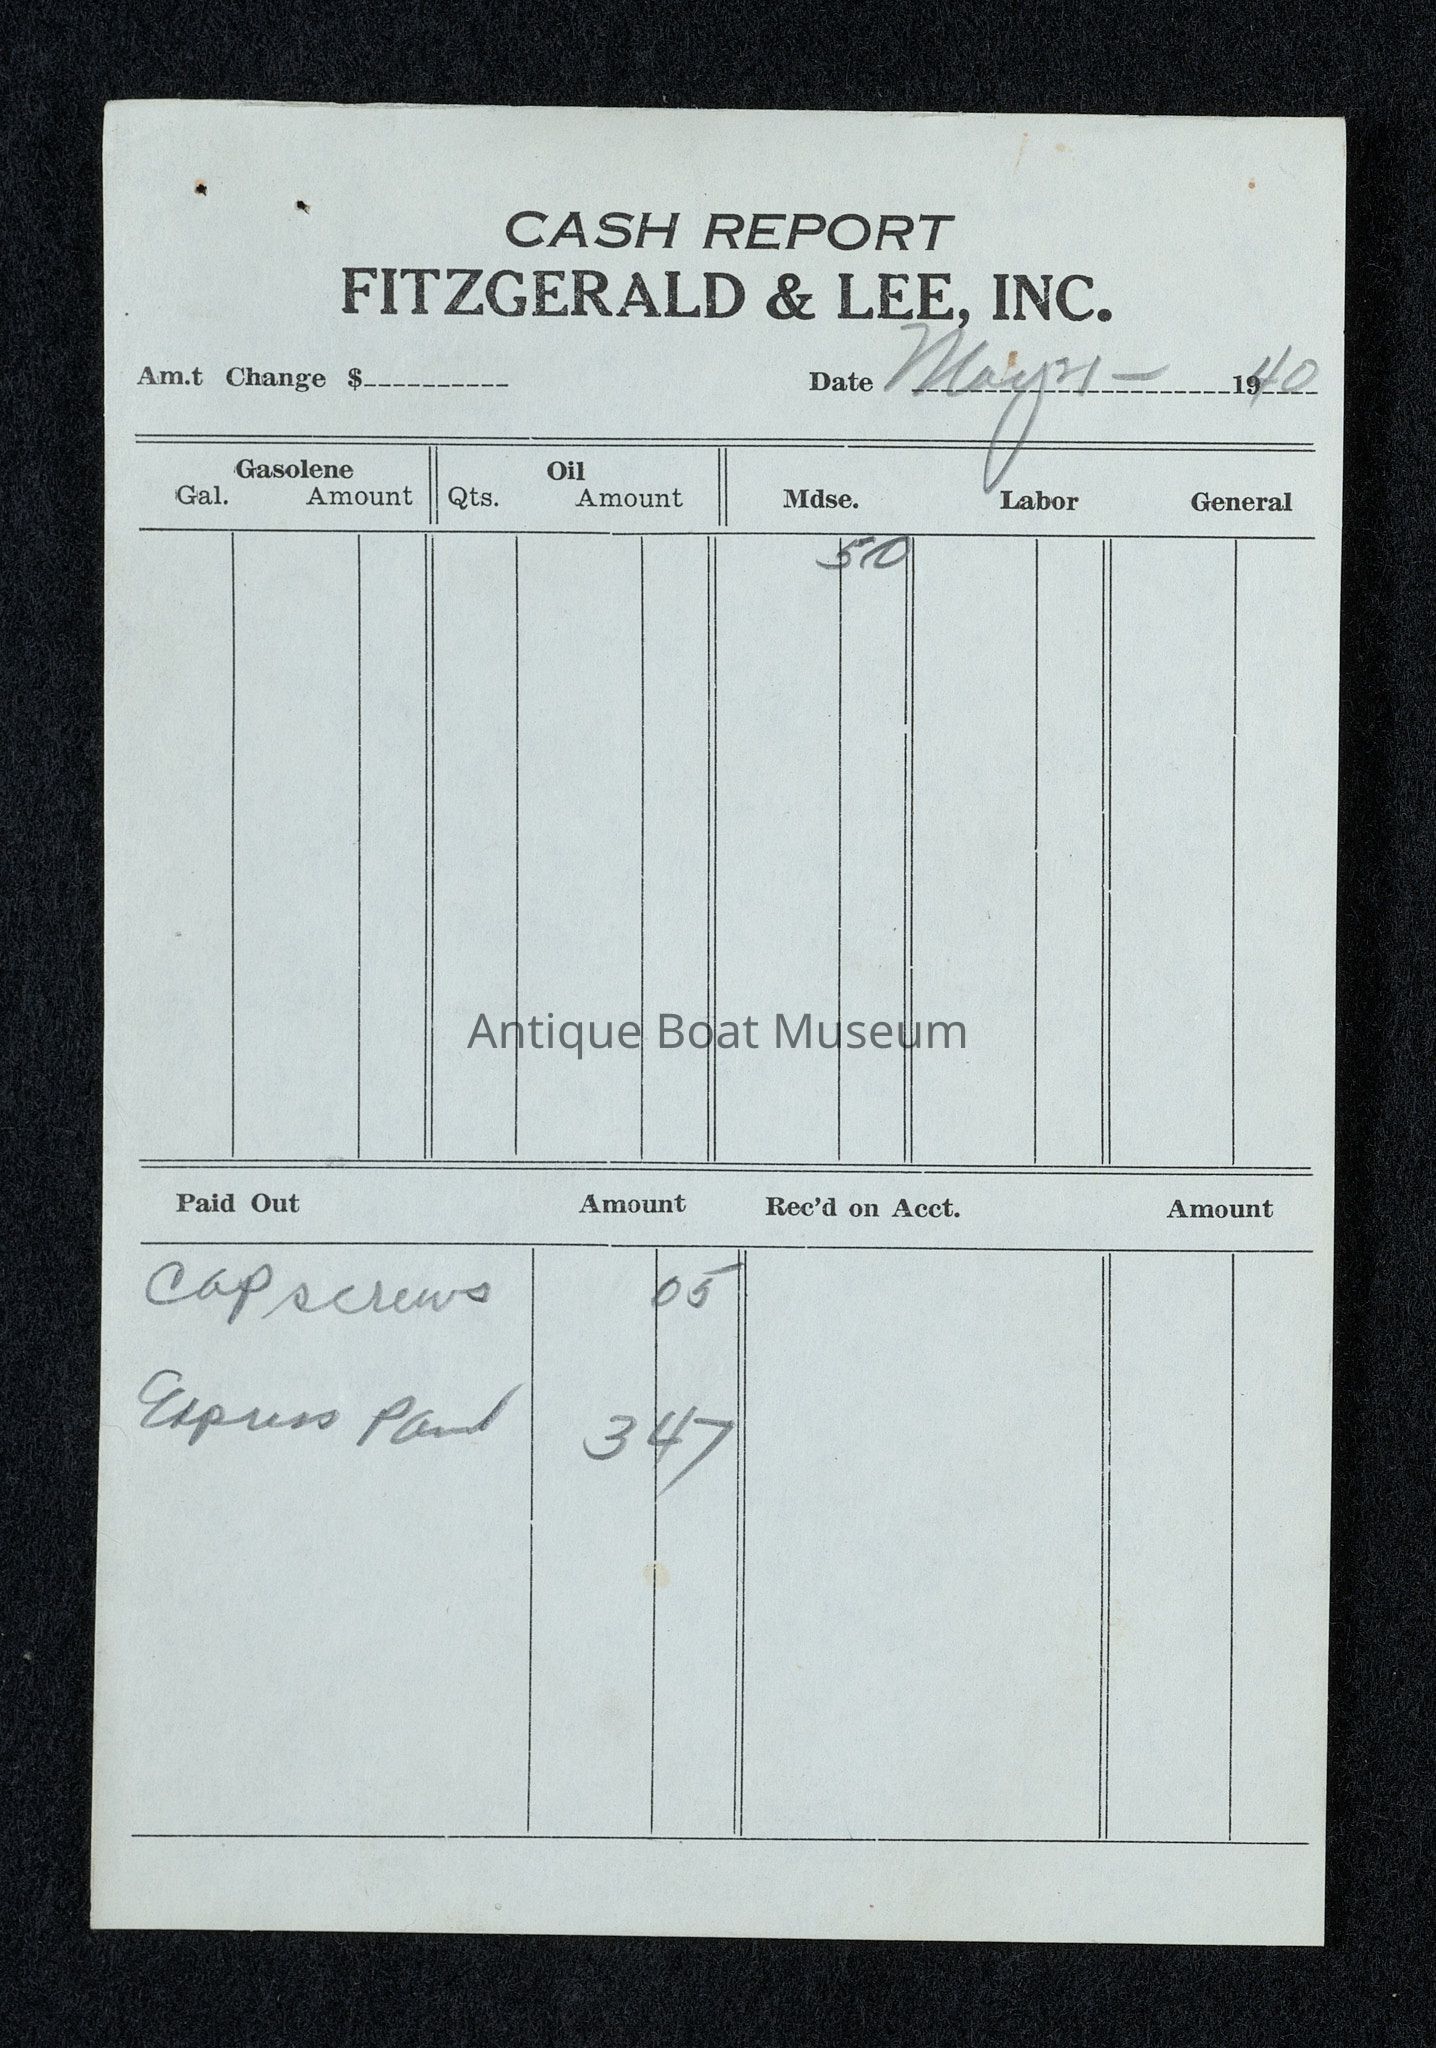 CASH REPORT
FITZGERALD & LEE, INC.
Am.t Change $ Date May 21 - 1940
Gasolene Oil
Gal. Amount Qts. Amount Mdse. Labor General
50
Antique Boat Museum
Paid Out Amount Rec'd on Acct. Amount
Cap screws 05
Express Paid 3 47